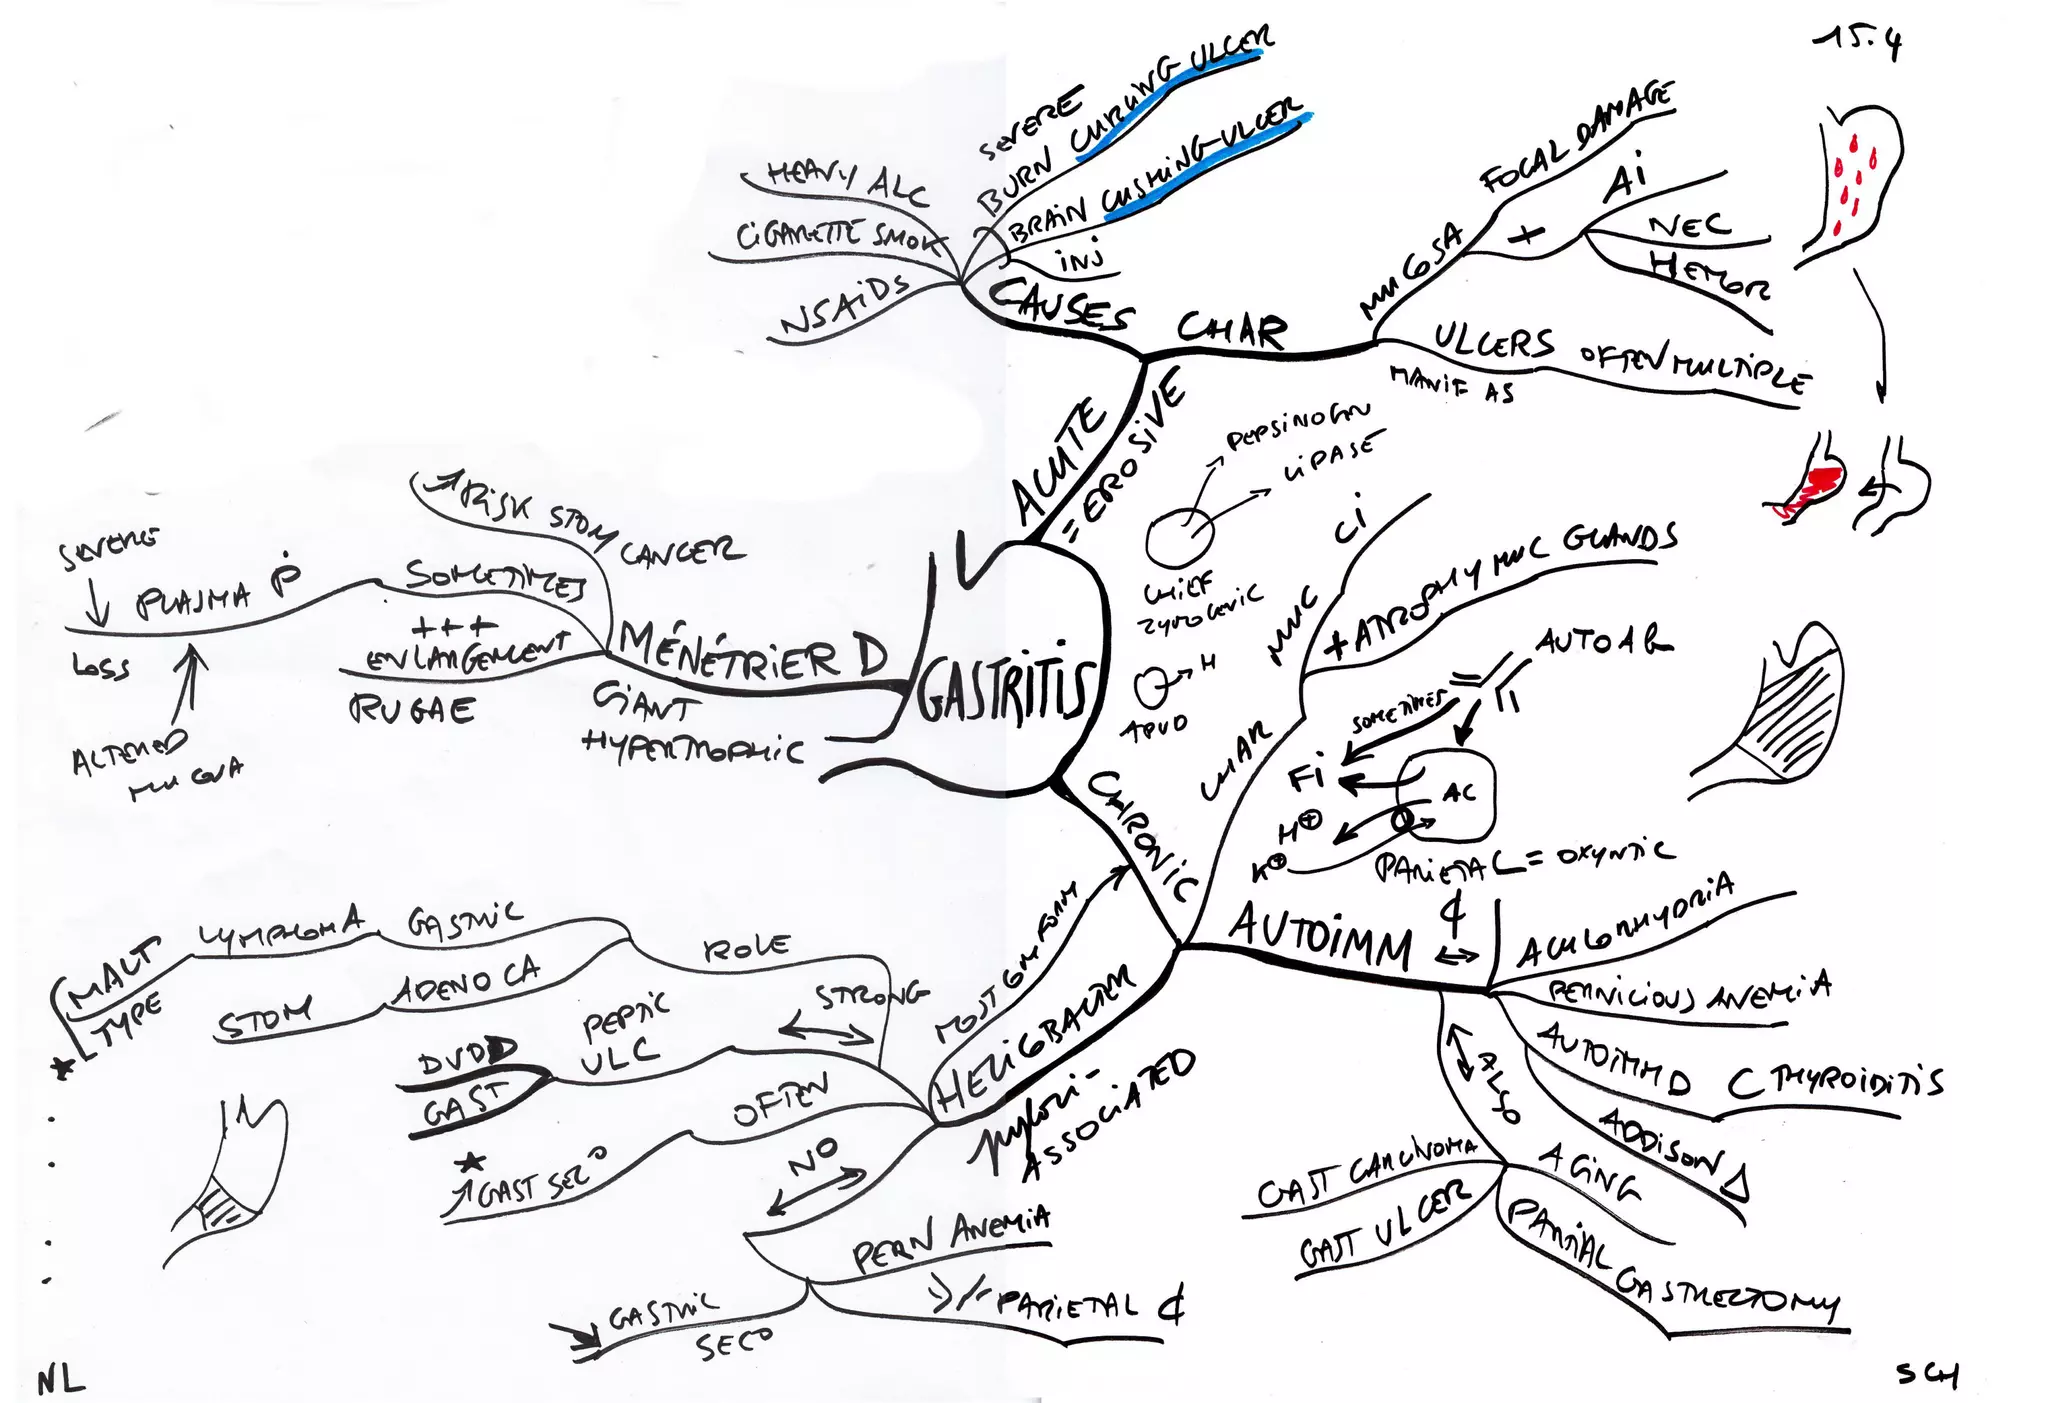 15.4
SEVERE
BURN CURLING ULCER
BRAIN CUSHING-ULCER
INJ
HEAVY ALC
CIGARETTE SMOK
NSAIDS
CAUSES
CHAR
MUCOSA
FOCAL DAMAGE
+
AI
NEC
HEMOR
ULCERS OFTEN MULTIPLE
MANIF AS
ACUTE
= EROSIVE
PEPSINOGN
LIPASE
CHIEF
ZYMOGENIC
H
APUD
GASTRITIS
MÉNÉTRIER D
GIANT
HYPERTROPHIC
RISK STOM CANCER
SOMETIMES
PLASMA P
SEVERE
LOSS
ALTERED
MUCOSA
+++
ENLARGEMENT
RUGAE
CHRONIC
CHAR
MUC
CI
+ ATROPHY MUC GLANDS
AUTOAB
SOMETIMES
FI
AC
H+
K+
PARIETAL = OXYNTIC
AUTOIMM
ACHLORHYDRIA
PERNICIOUS ANEMIA
AUTOIMM D C THYROIDITIS
ADDISON
ALSO
AGING
PARTIAL
GASTRECTOMY
GAST CARCINOMA
GAST ULCER
HELICOBACTER
pylori-
ASSOCIATED
MOST COM FORM
STRONG
ROLE
GASTRIC
LYMPHOMA
MALT
TYPE
ADENO CA
STOM
PEPTIC
ULC
DUOD
GAST
OFTEN
GAST SEC°
NO
PERN ANEMIA
PARIETAL
GASTRIC
SEC°
NL
SCH